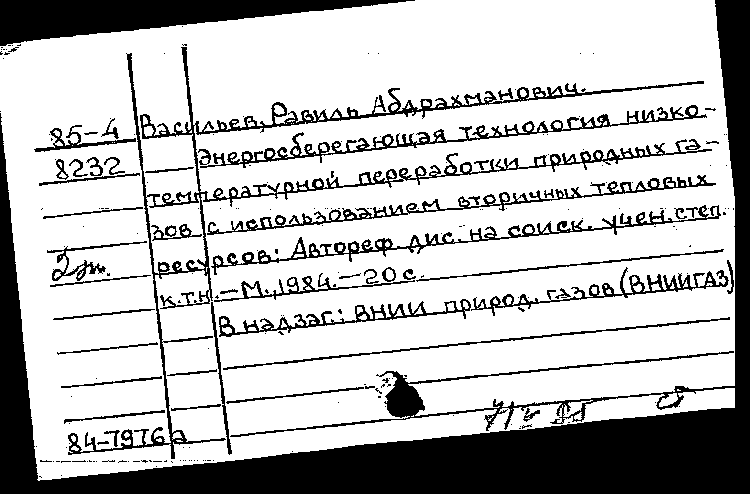 85-4 Васильев, Равиль Абдрахманович.
8232 Энергосберегающая технология низко-
температурной переработки природных га-
зов с использованием вторичных тепловых
2 эк. ресурсов: Автореф. дис. на соиск. учен. степ.
к.т.н. — М., 1984. — 20 с.
В надзаг.: ВНИИ природ. газов (ВНИИГАЗ)
84-7976а